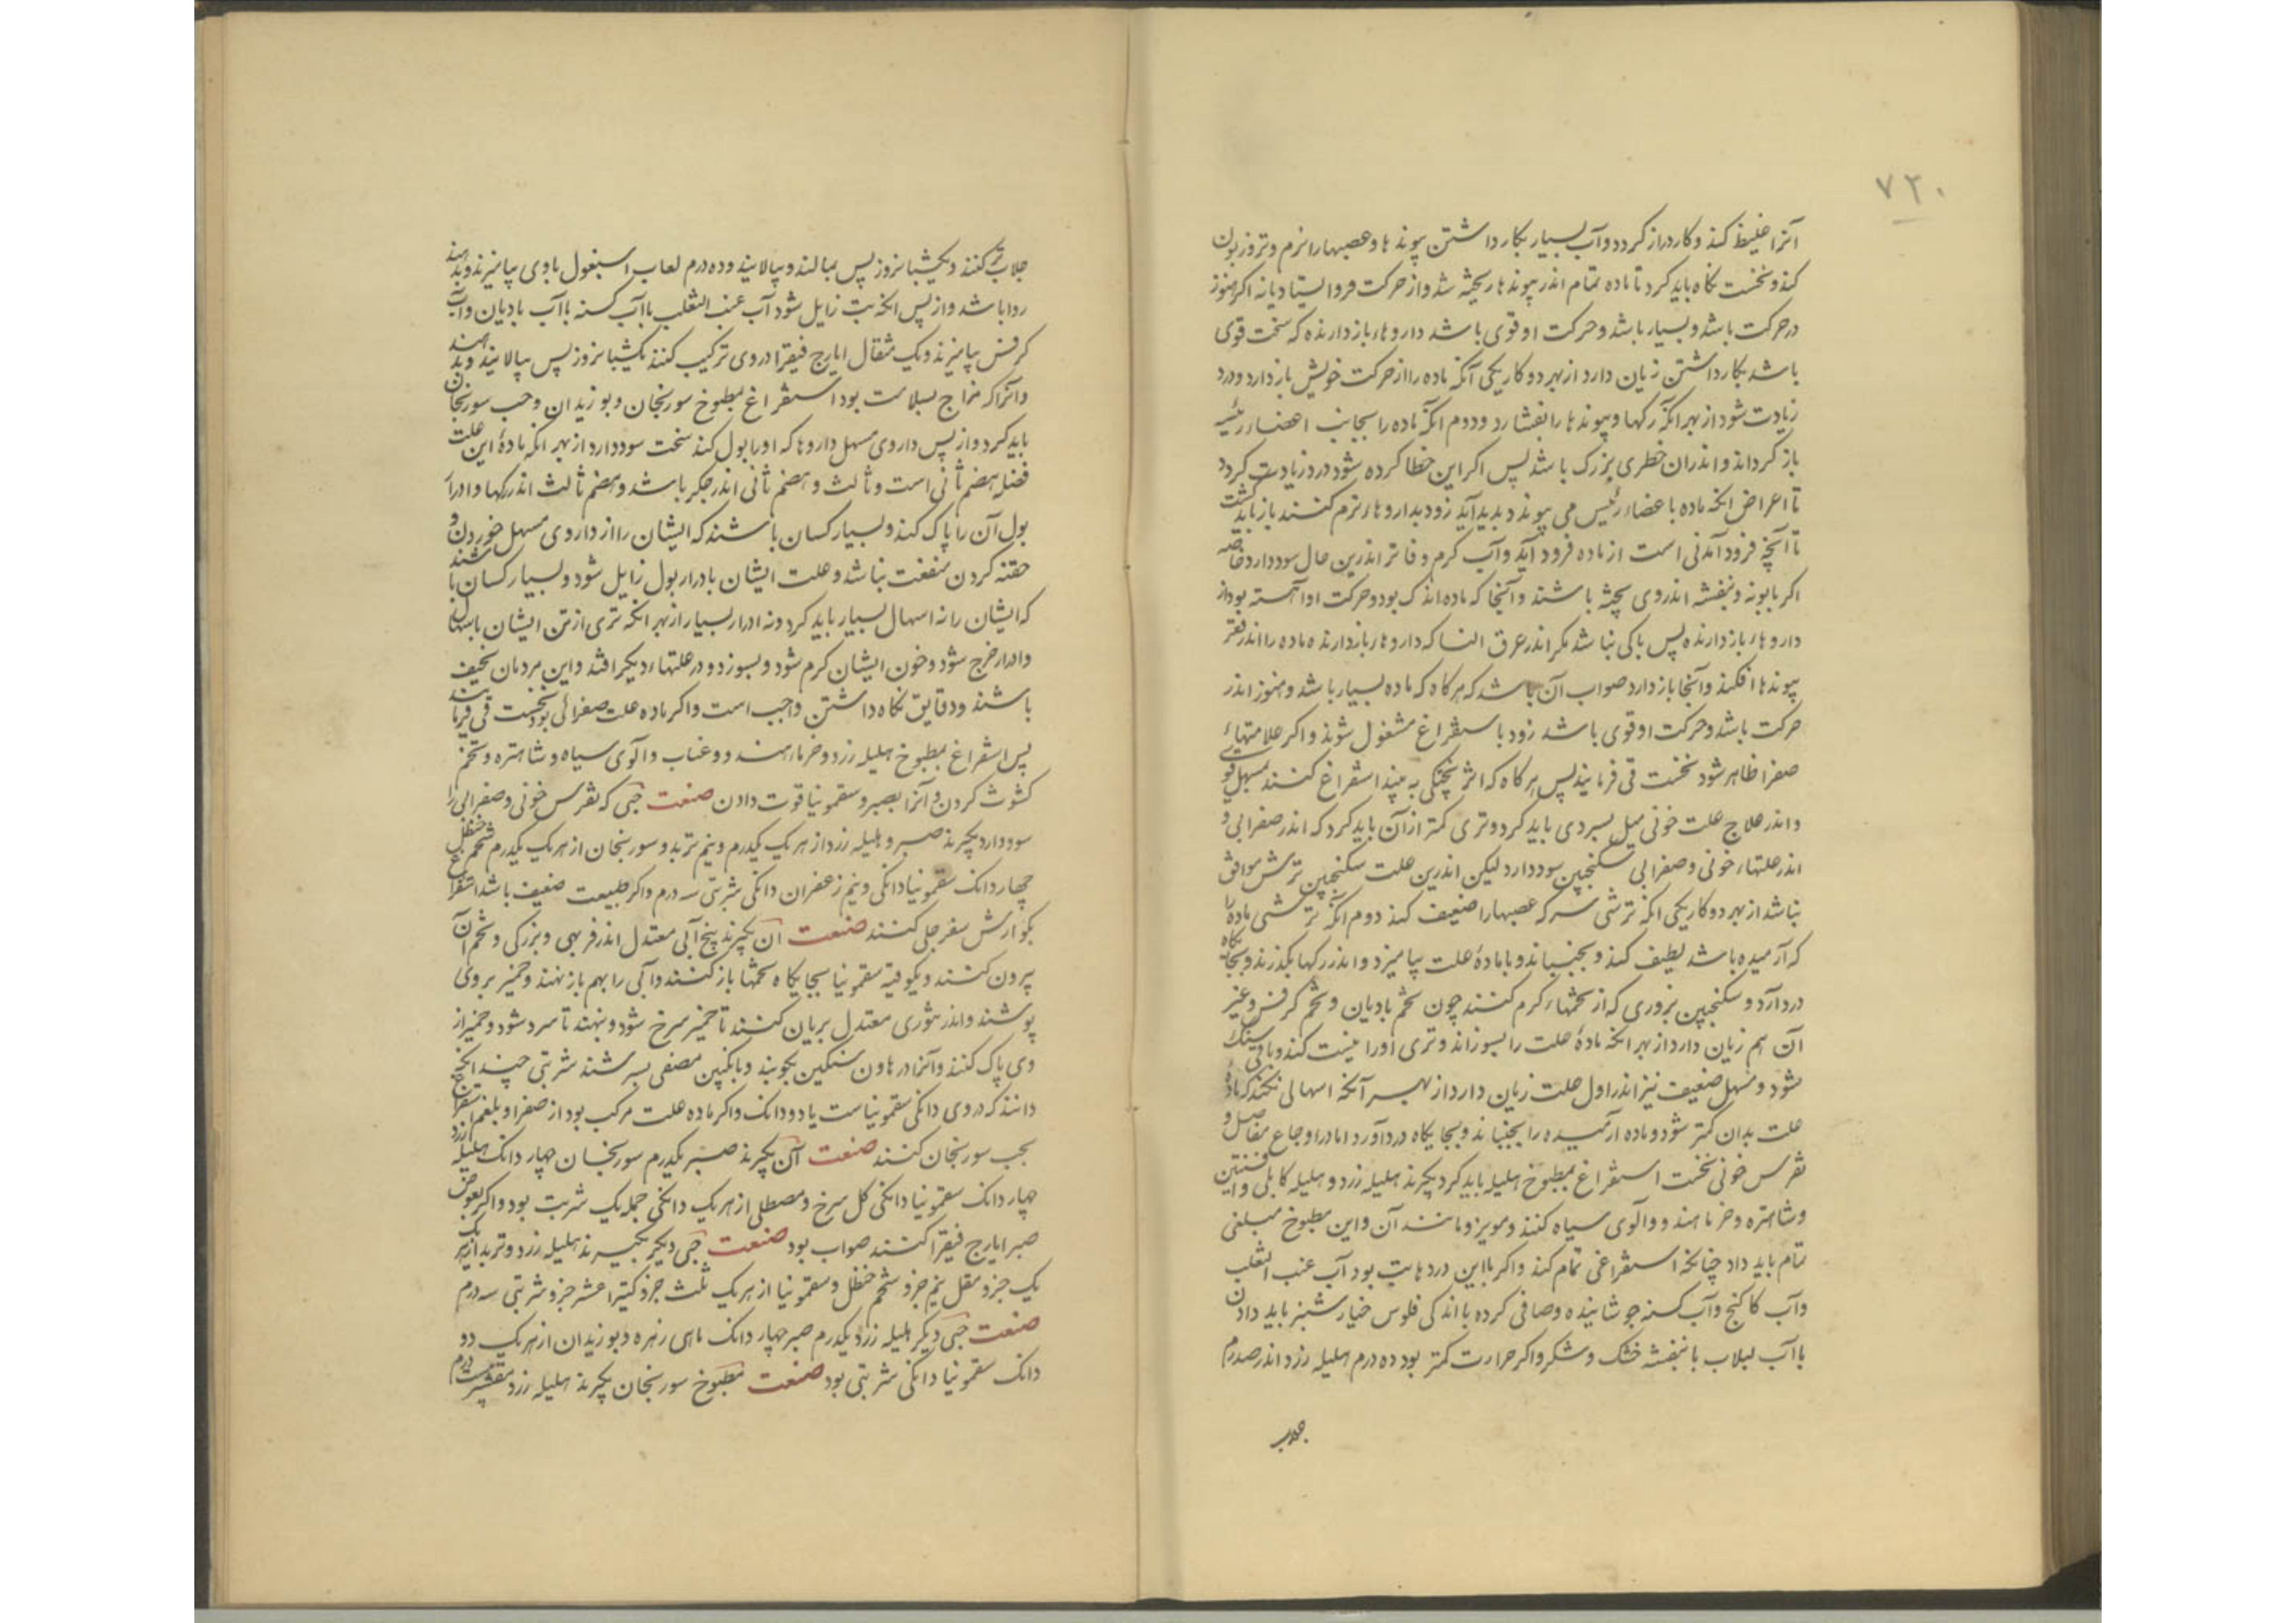 ۷۲۰
آنرا غلیظ کند و کار دراز کردد و آب بسیار بکار داشتن پیوندها و عصبها را نرم و تر و زبون
کند و نخست نکاه باید کرد تا ماده تمام اندر پیوندها ریخته شد و از حرکت فروایستاد یا نه اکر هنوز
در حرکت باشد و بسیار باشد و حرکت او قوی باشد داروهاء بازدارنده که سخت قوی
باشد بکار داشتن زیان دارد از بهر دو کار یکی آنکه ماده را از حرکت خویش باز دارد و درد
زیادت شود از بهر آنکه رکها و پیوندها را بفشارد و دوم آنکه ماده را بجانب اعضاء رئیسه
باز کرداند و اندران خطری بزرک باشد پس اکر این خطا کرده شود درد زیادت کردد
تا اعراض انکه ماده باعضاء رئیس می پیوندد پدید آید زود بداروهاء نرم کننده باز باید کشت
تا آنچه فرود آمدنی است از ماده فرود آید و آب کرم و فاتر اندرین حال سود دارد خاصه
اکر بابونه و بنفشه اندر وی پخته باشند و آنجا که ماده اندک بود و حرکت او آهسته بود از
داروهاء بازدارنده پس باکی نباشد مکر اندر عرق النسا که داروهاء بازدارنده ماده را اندر قعر
پیوندها افکند و آنجا باز دارد صواب آن باشد که هرکاه که ماده بسیار باشد و هنوز اندر
حرکت باشد و حرکت او قوی باشد زود باستفراغ مشغول شوند و اکر علامتهاء
صفرا ظاهر شود نخست قی فرمایند پس هرکاه که اثر پختکی به بیند استفراغ کنند بمسهل قوی
و اندر علاج علت خونی میل بسردی باید کرد و تری کمتر از آن باید کرد که اندر صفرایی و
اندر علتهاء خونی و صفرایی سکنجبین سود دارد لیکن اندرین علت سکنجبین ترش موافق
نباشد از بهر دو کار یکی انکه ترشی سرکه عصبها را ضعیف کند دوم انکه ترشی ماده را
که آرمیده باشد لطیف کند و بجنباند و با مادهٔ علت بیامیزد و اندر رکها بکذرند و بجایکاه
درد آرد و سکنجبین بزوری که از تخمهاء کرم کنند چون تخم بادیان و تخم کرفس و غیر
آن هم زیان دارد از بهر انکه مادهٔ علت را بسوزاند و تری او را نیست کند و باقی سنک
شود و مسهل ضعیف نیز اندر اول علت زیان دارد از بهر آنکه اسهالی نکند که مادهٔ
علت بدان کمتر شود و ماده آرمیده را بجنباند و بجایکاه درد آورد اما در اوجاع مفاصل و
نقرس خونی نخست استفراغ بمطبوخ هلیله باید کرد بکیرند هلیله زرد و هلیله کابلی و افسنتین
و شاهتره و خرما هندو و آلوی سیاه کنند و مویز و مانند آن و این مطبوخ مبلغی
تمام باید داد چنانکه استفراغی تمام کند و اکر با این درد ها تب بود آب عنب الثعلب
و آب کاکنج و آب کسنه جوشانیده و صافی کرده با اندکی فلوس خیارشنبر باید دادن
یا آب لبلاب با بنفشه خشک و شکر و اکر حرارت کمتر بود ده درم هلیله زرد اندر صد درم
جلاب
جلاب تر کنند و یکشبانروز پس بمالند و بپالایند و ده درم لعاب اسبغول با وی بیامیزند و بدهند
روا باشد و از پس انکه تب زایل شود آب عنب الثعلب با آب کسنه با آب بادیان و آب
کرفس بیامیزند و یک مثقال ایارج فیقرا در وی ترکیب کنند یکشبانروز پس بپالایند و بدهند
و آنرا که مزاج بسلامت بود استفراغ بمطبوخ سورنجان و بوزیدان و حب سورنجان
باید کرد و از پس داروی مسهل داروها که ادرار بول کند سخت سود دارد از بهر انکه مادهٔ این علت
فضله هضم ثانی است و ثالث و هضم ثانی اندر جکر باشد و هضم ثالث اندر رکها و ادرار
بول آن را پاک کند و بسیار کسان باشند که ایشان را از داروی مسهل خوردن و
حقنه کردن منفعت نباشد و علت ایشان بادرار بول زایل شود و بسیار کسان باشند
که ایشان را نه اسهال بسیار باید کرد و نه ادرار بسیار از بهر انکه تری از تن ایشان باسهال
و ادرار خرج شود و خون ایشان کرم شود و بسوزد و در علتهاء دیکر افتد و این مردمان نحیف
باشند و دقایق نکاه داشتن واجب است و اکر ماده علت صفرائی بود نخست قی فرمایند
پس استفراغ بمطبوخ هلیله زرد و خرماء هندو و عناب و آلوی سیاه و شاهتره و تخم
کشوث کردن و آنرا بصبر و سقمونیا قوت دادن صنعت حبی که نقرس خونی و صفرایی را
سود دارد بکیرند صبر و هلیله زرد از هر یک یکدرم و نیم تربد و سورنجان از هر یک یکدرم شحم حنظل
چهار دانک سقمونیا دانکی و نیم زعفران دانکی شربتی سه درم و اکر طبیعت ضعیف باشد استفراغ
بکوارش سفرجلی کنند صنعت آن بکیرند پنج آبی معتدل اندر فربهی و بزرکی و تخم آن
بیرون کنند و یکوقیه سقمونیا بجایکاه تخمها باز کنند و آبی را بهم باز نهند و خمیر بر وی
پوشند و اندر تنوری معتدل بریان کنند تا خمیر سرخ شود و بنهند تا سرد شود و خمیر از
وی پاک کنند و آنرا در هاون سنکین بکوبند و بانکبین مصفی بسرشند شربتی چندانکه
دانند که در وی دانکی سقمونیاست یا دو دانک و اکر ماده علت مرکب بود از صفرا و بلغم استفراغ
بحب سورنجان کنند صنعت آن بکیرند صبر یکدرم سورنجان چهار دانک هلیله زرد
چهار دانک سقمونیا دانکی کل سرخ و مصطلی از هر یک دانکی جمله یک شربت بود و اکر بعوض
صبر ایارج فیقرا کنند صواب بود صنعت حبی دیکر بکیرند هلیله زرد و تربد از هر یک
یک جزو مقل نیم جزو شحم حنظل و سقمونیا از هر یک ثلث جزو کتیرا عشر جزو شربتی سه درم
صنعت حبی دیکر هلیله زرد یکدرم صبر چهار دانک ماهی زهره و بوزیدان از هر یک دو
دانک سقمونیا دانکی شربتی بود صنعت مطبوخ سورنجان بکیرند هلیله زرد مقشر